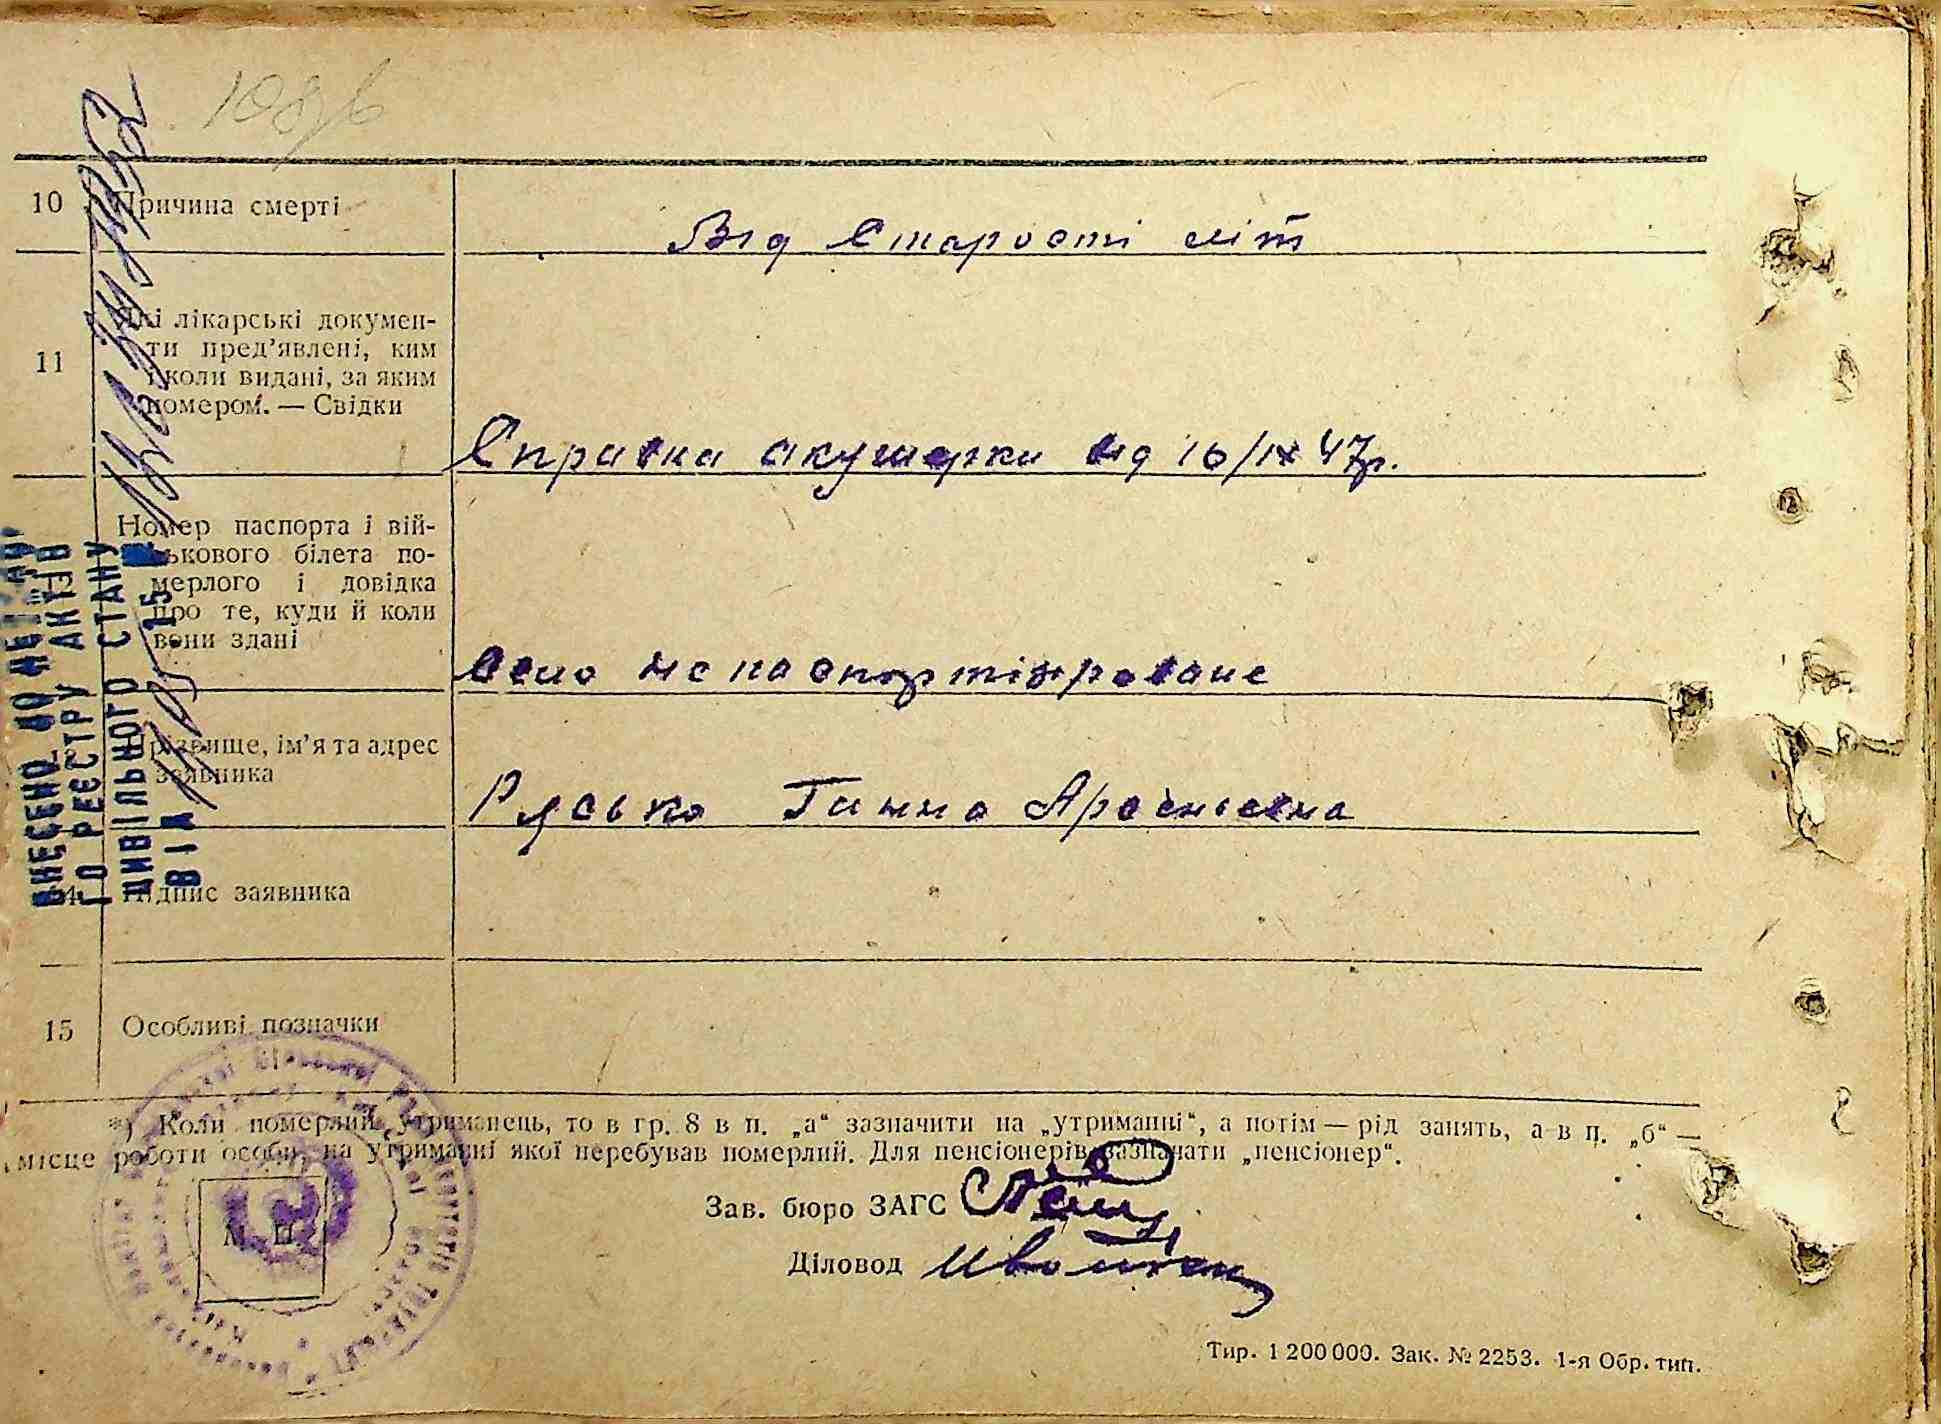 108/в
10 Причина смерті
Від Старості літ
11 Які лікарські докумен-
ти пред'явлені, ким
і коли видані, за яким
номером. — Свідки
Справка акушерки від 16/IX 47р.
Номер паспорта і вій-
ськового білета по-
мерлого і довідка
про те, куди й коли
вони здані
Село не паспортізіроване
Прізвище, ім'я та адрес
заявника
Рясько Ганна Арсеньевна
14 Підпис заявника
15 Особливі позначки
*) Коли померлий утриманець, то в гр. 8 в п. „а“ зазначити на „утриманні“, а потім — рід занять, а в п. „б“ —
місце роботи особи, на утриманні якої перебував померлий. Для пенсіонерів зазначати „пенсіонер“.
М. П.
Зав. бюро ЗАГС
Діловод
Тир. 1 200 000. Зак. № 2253. 1-я Обр. тип.
ВНЕСЕНО ДО
ГО РЕЄСТРУ АКТІВ
ЦИВІЛЬНОГО СТАНУ
ВІД 15 Р